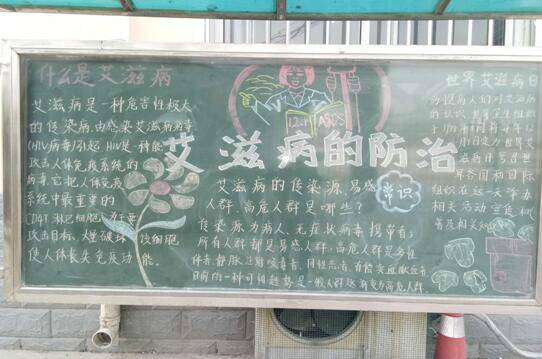 什么是艾滋病
艾滋病是一种危害性极大
的传染病,由感染艾滋病病毒
(HIV病毒)引起,HIV是一种能
攻击人体免疫系统的
病毒。它把人体免疫
系统中最重要的
CD4T淋巴细胞作为
攻击目标,大量破坏该细胞
使人体丧失免疫功能。
12.1
AIDS
艾滋病的防治
常识
艾滋病的传染源、易感
人群、高危人群是哪些?
传染源为病人、无症状病毒携带者;
所有人群都是易感人群,高危人群是多性
伴者、静脉注射吸毒者、同性恋者、有偿
目前的一种可能趋势是一般人群逐渐变为高危人群.
世界艾滋病日
为提高人们对艾滋病
的认识
世界卫生组织
于1988年
月1日定为世界艾
滋病日,号召世
界各国和国际
组织在这一天举办
相关活动,宣传和
普及相关知识